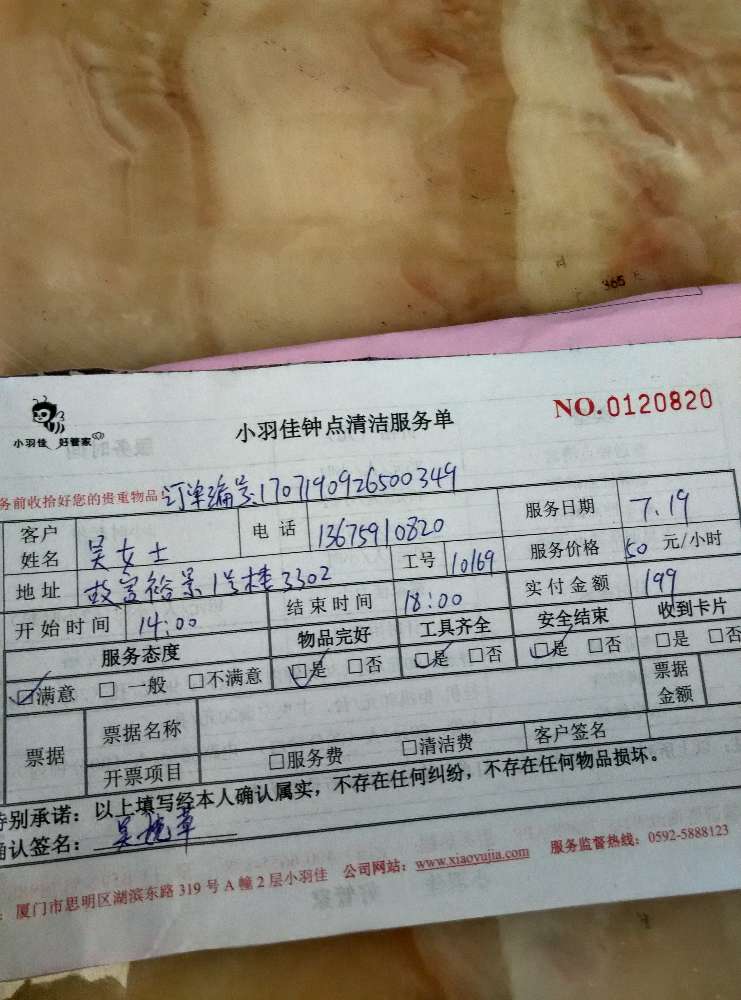 365
小羽佳 好管家
小羽佳钟点清洁服务单
NO.0120820
务前收拾好您的贵重物品! 订单编号:170719092650​0349
客户姓名 吴女士 电话 13675910820 服务日期 7.19
地址 故宫裕景1号楼3302 工号 10169 服务价格 50 元/小时
开始时间 14:00 结束时间 18:00 实付金额 199
服务态度 物品完好 工具齐全 安全结束 收到卡片
☑满意 □一般 □不满意 ☑是 □否 ☑是 □否 ☑是 □否 □是 □否
票据 票据名称 票据金额
开票项目 □服务费 □清洁费 客户签名
特别承诺：以上填写经本人确认属实，不存在任何纠纷，不存在任何物品损坏。
确认签名：吴
：厦门市思明区湖滨东路319号A幢2层小羽佳 公司网站：www.xiaoyujia.com 服务监督热线：0592-5888123